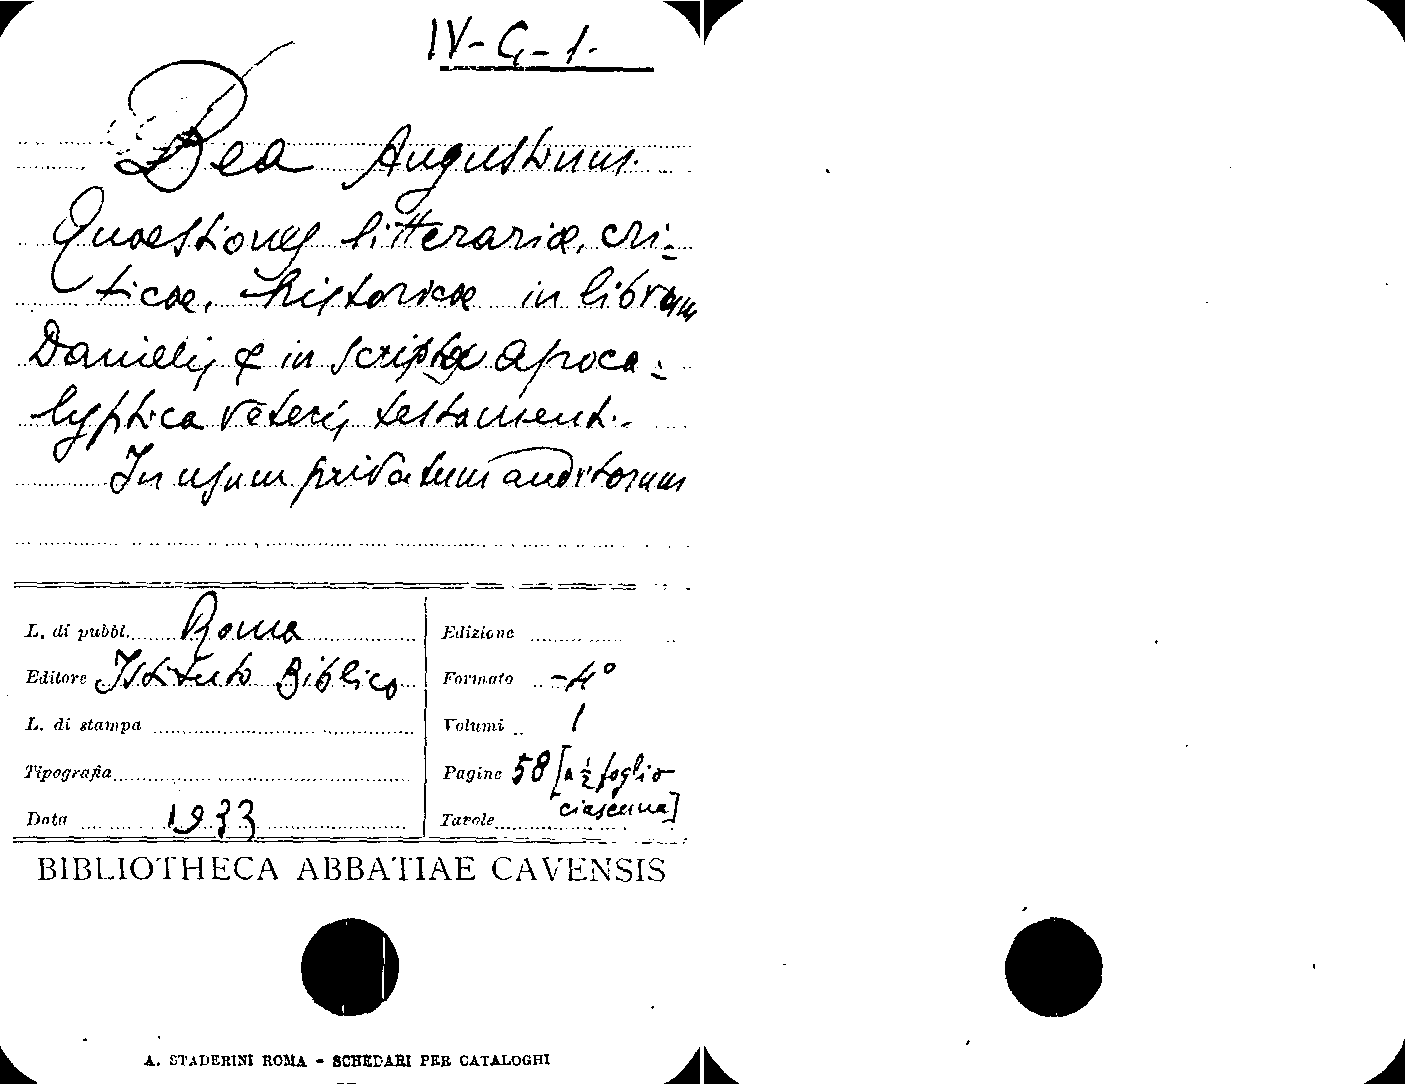 IV-G-1.
Bea Augustinus.
Quaestiones litterariae, cri-
ticae, historicae in librum
Danielis & in scripta apoca-
lyptica veteris testament.
In usum privatum auditorum
L. di pubbl. Roma
Editore Istituto Biblico
L. di stampa
Tipografia
Data 1933
Edizione
Formato -4°
Volumi 1
Pagine 58 [a ½ foglio
ciascuna]
Tavole
BIBLIOTHECA ABBATIAE CAVENSIS
A. STADERINI ROMA - SCHEDARI PER CATALOGHI